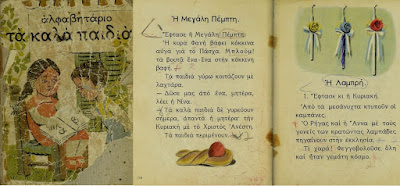 ἀλφαβητάριο
τὰ καλὰ παιδιὰ
Ἡ Μεγάλη Πέμπτη.
Ἔφτασε ἡ Μεγάλη Πέμπτη.
Ἡ κυρα Θανὴ βάφει κόκκινα
αὐγὰ γιὰ τὸ Πάσχα. Μπλούμ!
τὰ βουτᾶ ἕνα-ἕνα στὴν κόκκινη
βαφή.
Τὰ παιδιὰ γύρω κοιτάζουν μὲ
λαχτάρα.
— Δῶσε μας ἀπὸ ἕνα, μητέρα,
λέει ἡ Νίνα.
— Τὰ καλὰ παιδιὰ δὲ γυρεύουν
σήμερα, ἀπαντᾶ ἡ μητέρα· τὴν
Κυριακὴ μὲ τὸ Χριστὸς Ἀνέστη.
Τὰ παιδιὰ περιμένουν.
Ἡ Λαμπρή.
1. Ἔφτασε κι ἡ Κυριακή.
Ἀπὸ τὰ μεσάνυχτα κτυποῦν οἱ
καμπάνες.
Ὁ Ρήγας καὶ ἡ Ἄννα μὲ τοὺς
γονεῖς των κρατώντας λαμπάδες
πηγαίνουν στὴν ἐκκλησία.
Τί χαρά! Φεγγοβολοῦσε, ὅλη
καὶ ἦταν γεμάτη κόσμο.